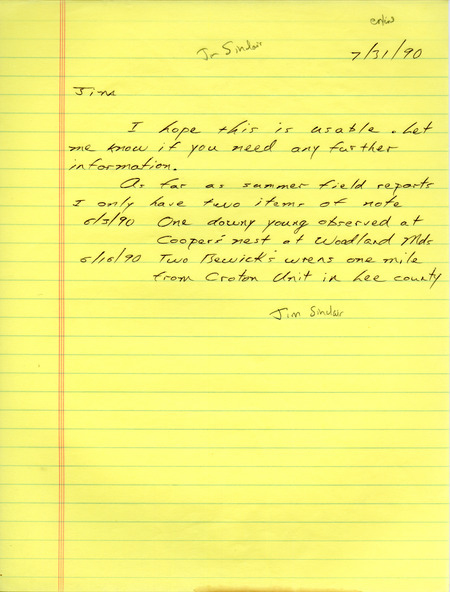 Jim Sinclair
7/31/90
Jim
I hope this is usable. Let
me know if you need any further
information.
As far as summer field reports
I only have two items of note
6/3/90 One downy young observed at
Cooper's nest at Woodland Mds
6/16/90 Two Bewick's wrens one mile
from Croton Unit in Lee county
Jim Sinclair